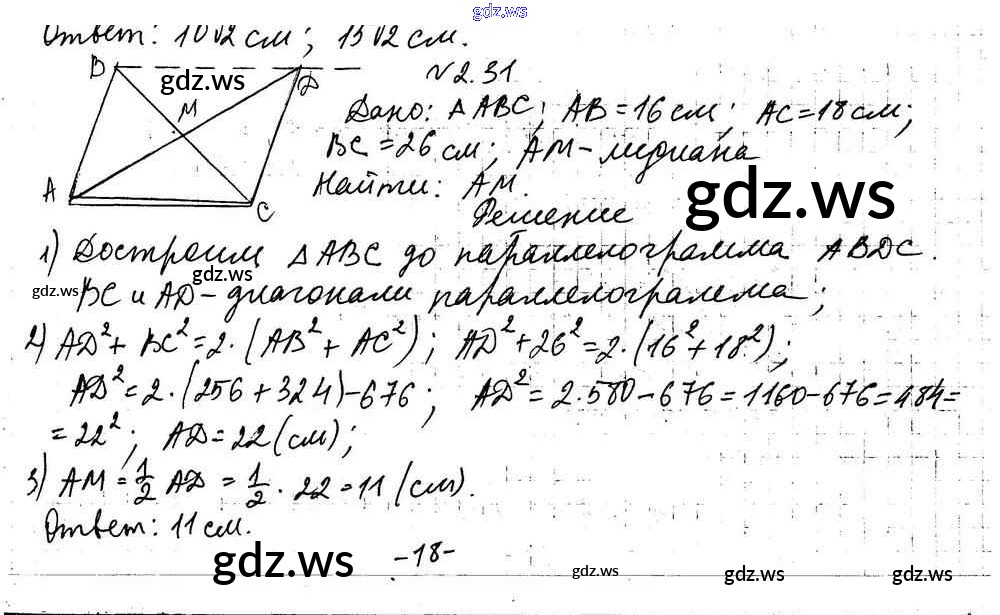 gdz.ws
Ответ: 10√2 см; 15√2 см.
B D
gdz.ws
M
A C
№ 2.31
Дано: △ABC; AB=16 см; AC=18 см;
BC=26 см; AM-медиана
Найти: AM.
gdz.ws
Решение
1) Достроим △ABC до параллелограмма ABDC.
gdz.ws
gdz.ws
gdz.ws
BC и AD-диагонали параллелограмма;
2) AD²+BC²=2·(AB²+AC²); AD²+26²=2·(16²+18²);
AD²=2·(256+324)-676; AD²=2·580-676=1160-676=484=
=22²; AD=22(см);
3) AM=1/2 AD=1/2·22=11(см).
Ответ: 11 см.
gdz.ws
-18-
gdz.ws
gdz.ws
gdz.ws